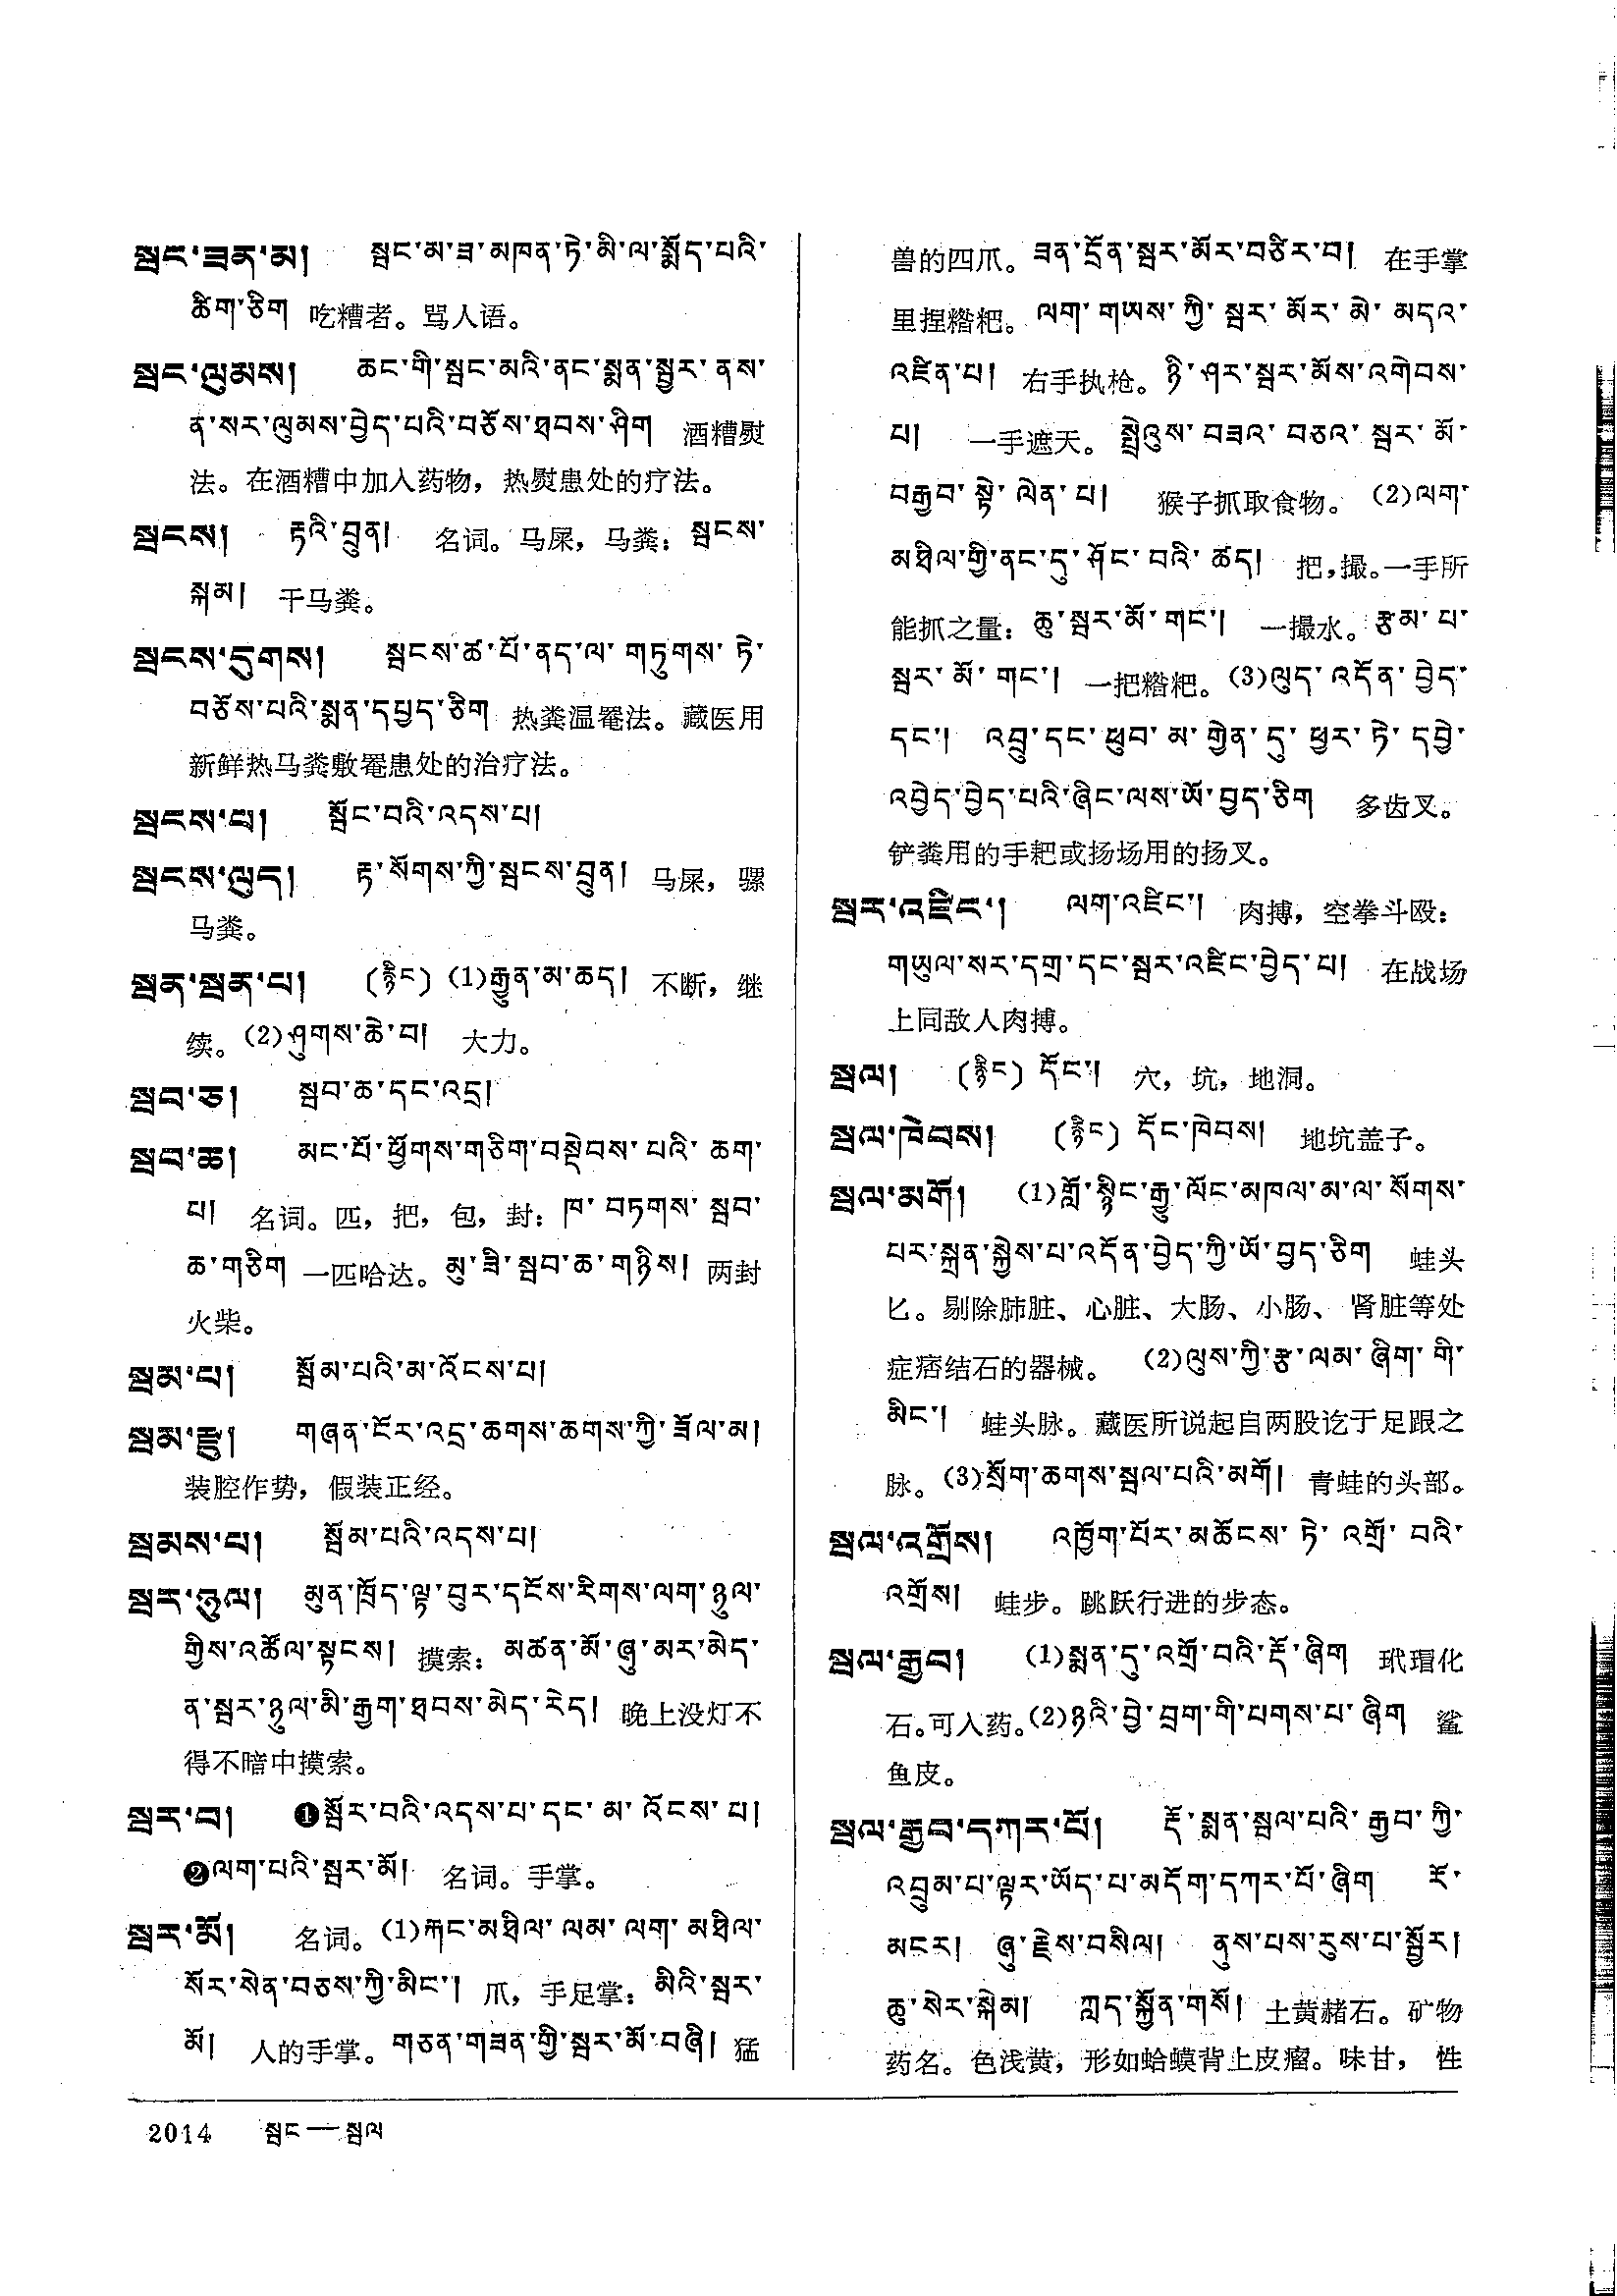 སྦང་ཟན་མ།　སྦང་མ་ཟ་མཁན་ཏེ་མི་ལ་སྨོད་པའི་
ཚིག་ཅིག 吃糟者。骂人语。
སྦང་ལུམས།　ཆང་གི་སྦང་མའི་ནང་སྨན་སྦྱར་ནས་
ན་སར་ལུམས་བྱེད་པའི་བཅོས་ཐབས་ཤིག 酒糟熨
法。在酒糟中加入药物，热熨患处的疗法。
སྦངས།　རྟའི་བྲུན།　名词。马屎，马粪：སྦངས་
སྐམ།　干马粪。
སྦངས་དུགས།　སྦངས་ཚ་པོ་ནད་ལ་གཏུགས་ཏེ་
བཅོས་པའི་སྨན་དཔྱད་ཅིག 热粪温罨法。藏医用
新鲜热马粪敷罨患处的治疗法。
སྦངས་པ།　སྦོང་བའི་འདས་པ།
སྦངས་ལུད།　རྟ་སོགས་ཀྱི་སྦངས་བྲུན།　马屎，骡
马粪。
སྦན་སྦན་པ།　(རྙིང) (1)རྒྱུན་མ་ཆད།　不断，继
续。(2)ཤུགས་ཆེ་བ།　大力。
སྦབ་ཅ།　སྦབ་ཆ་དང་འདྲ།
སྦབ་ཆ།　མང་པོ་ཕྱོགས་གཅིག་བསྡེབས་པའི་ཆག་
པ།　名词。匹，把，包，封：ཁ་བཏགས་སྦབ་
ཆ་གཅིག 一匹哈达。མུ་ཟི་སྦབ་ཆ་གཉིས།　两封
火柴。
སྦམ་པ།　སྦོམ་པའི་མ་འོངས་པ།
སྦམ་རྫུ།　གཞན་ངོར་འདྲ་ཆགས་ཆགས་ཀྱི་ཟོལ་མ།
装腔作势，假装正经。
སྦམས་པ།　སྦོམ་པའི་འདས་པ།
སྦར་ཉུལ།　མུན་ཁྲོད་ལྟ་བུར་དངོས་རིགས་ལག་ཉུལ་
གྱིས་འཚོལ་སྟངས།　摸索：མཚན་མོ་ཞུ་མར་མེད་
ན་སྦར་ཉུལ་མི་རྒྱག་ཐབས་མེད་རེད།　晚上没灯不
得不暗中摸索。
སྦར་བ།　❶སྦོར་བའི་འདས་པ་དང་མ་འོངས་པ།
❷ལག་པའི་སྦར་མོ།　名词。手掌。
སྦར་མོ།　名词。(1)རྐང་མཐིལ་ལམ་ལག་མཐིལ་
སོར་སེན་བཅས་ཀྱི་མིང་།　爪，手足掌：མིའི་སྦར་
མོ།　人的手掌。གཅན་གཟན་གྱི་སྦར་མོ་བཞི།　猛
兽的四爪。ཟན་དྲོན་སྦར་མོར་བཙིར་བ།　在手掌
里捏糌粑。ལག་གཡས་ཀྱི་སྦར་མོར་མེ་མདའ་
འཛིན་པ།　右手执枪。ཉི་ཤར་སྦར་མོས་འགེབས་
པ།　一手遮天。སྤྲེའུས་བཟའ་བཅའ་སྦར་མོ་
བརྒྱབ་སྟེ་ལེན་པ།　猴子抓取食物。(2)ལག་
མཐིལ་གྱི་ནང་དུ་ཤོང་བའི་ཚད།　把，撮。一手所
能抓之量：ཆུ་སྦར་མོ་གང་།　一撮水。རྩམ་པ་
སྦར་མོ་གང་།　一把糌粑。(3)ལུད་འདོན་བྱེད་
དང་།　འབྲུ་དང་ཕུབ་མ་གྱེན་དུ་ཕྱར་ཏེ་དབྱེ་
འབྱེད་བྱེད་པའི་ཞིང་ལས་ཡོ་བྱད་ཅིག　多齿叉。
铲粪用的手耙或扬场用的扬叉。
སྦར་འཛིང་།　ལག་འཛིང་།　肉搏，空拳斗殴：
གཡུལ་སར་དགྲ་དང་སྦར་འཛིང་བྱེད་པ།　在战场
上同敌人肉搏。
སྦལ།　(རྙིང) དོང་།　穴，坑，地洞。
སྦལ་ཁེབས།　(རྙིང) དོང་ཁེབས།　地坑盖子。
སྦལ་མགོ།　(1)གློ་སྙིང་རྒྱུ་ལོང་མཁལ་མ་ལ་སོགས་
པར་སྐྲན་སྐྱེས་པ་འདོན་བྱེད་ཀྱི་ཡོ་བྱད་ཅིག　蛙头
匕。剔除肺脏、心脏、大肠、小肠、肾脏等处
症痞结石的器械。(2)ལུས་ཀྱི་རྩ་ལམ་ཞིག་གི་
མིང་།　蛙头脉。藏医所说起自两股讫于足跟之
脉。(3)སྲོག་ཆགས་སྦལ་པའི་མགོ།　青蛙的头部。
སྦལ་འགྲོས།　འཁྱོག་པོར་མཆོངས་ཏེ་འགྲོ་བའི་
འགྲོས།　蛙步。跳跃行进的步态。
སྦལ་རྒྱབ།　(1)སྨན་དུ་འགྲོ་བའི་རྡོ་ཞིག　玳瑁化
石。可入药。(2)ཉའི་བྱེ་བྲག་གི་པགས་པ་ཞིག　鲨
鱼皮。
སྦལ་རྒྱབ་དཀར་པོ།　རྡོ་སྨན་སྦལ་པའི་རྒྱབ་ཀྱི་
འབྲུམ་པ་ལྟར་ཡོད་པ་མདོག་དཀར་པོ་ཞིག　རོ་
མངར།　ཞུ་རྗེས་བསིལ།　ནུས་པས་རུས་པ་སྦྱོར།
ཆུ་སེར་སྐེམ།　ཀླད་སྐྱོན་གསོ།　土黄赭石。矿物
药名。色浅黄，形如蛤蟆背上皮瘤。味甘，性
2014　སྦང—སྦལ